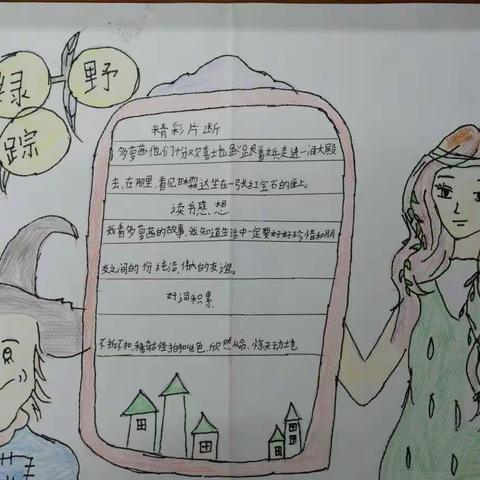 绿野
踪
精彩片断
多萝茜他们十分欢喜地跟着女兵走进一间大殿
去,在那里,看见甘林达坐在一张红宝石的座上。
读书感想
我看多萝茜的故事,我知道生活中一定要好好珍惜和朋
友之间的份纯洁,伟大的友谊。
好词积累
不折不扣、稀奇怪拍和生色、欣然从命、惊天动地